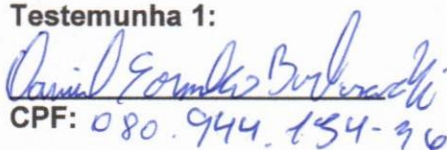 Testemunha 1:
Daniel
CPF: 080.944.154-36